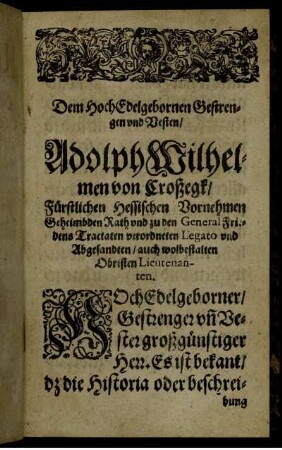 Dem HochEdelgebornen Gestren-
gen vnd Vesten/
Adolph Wilhel-
men von Croßegk/
Fürstlichen Hessischen Vornehmen
Geheimbden Rath vnd zu den General Fri-
dens Tractaten verordneten Legato vnd
Abgesandten / auch wolbestalten
Obristen Lieutenan-
ten.
HOchEdelgeborner/
Gestrenger vñ Ve-
ster großgünstiger
Herr. Es ist bekant/
dz die Historia oder beschrei-
bung